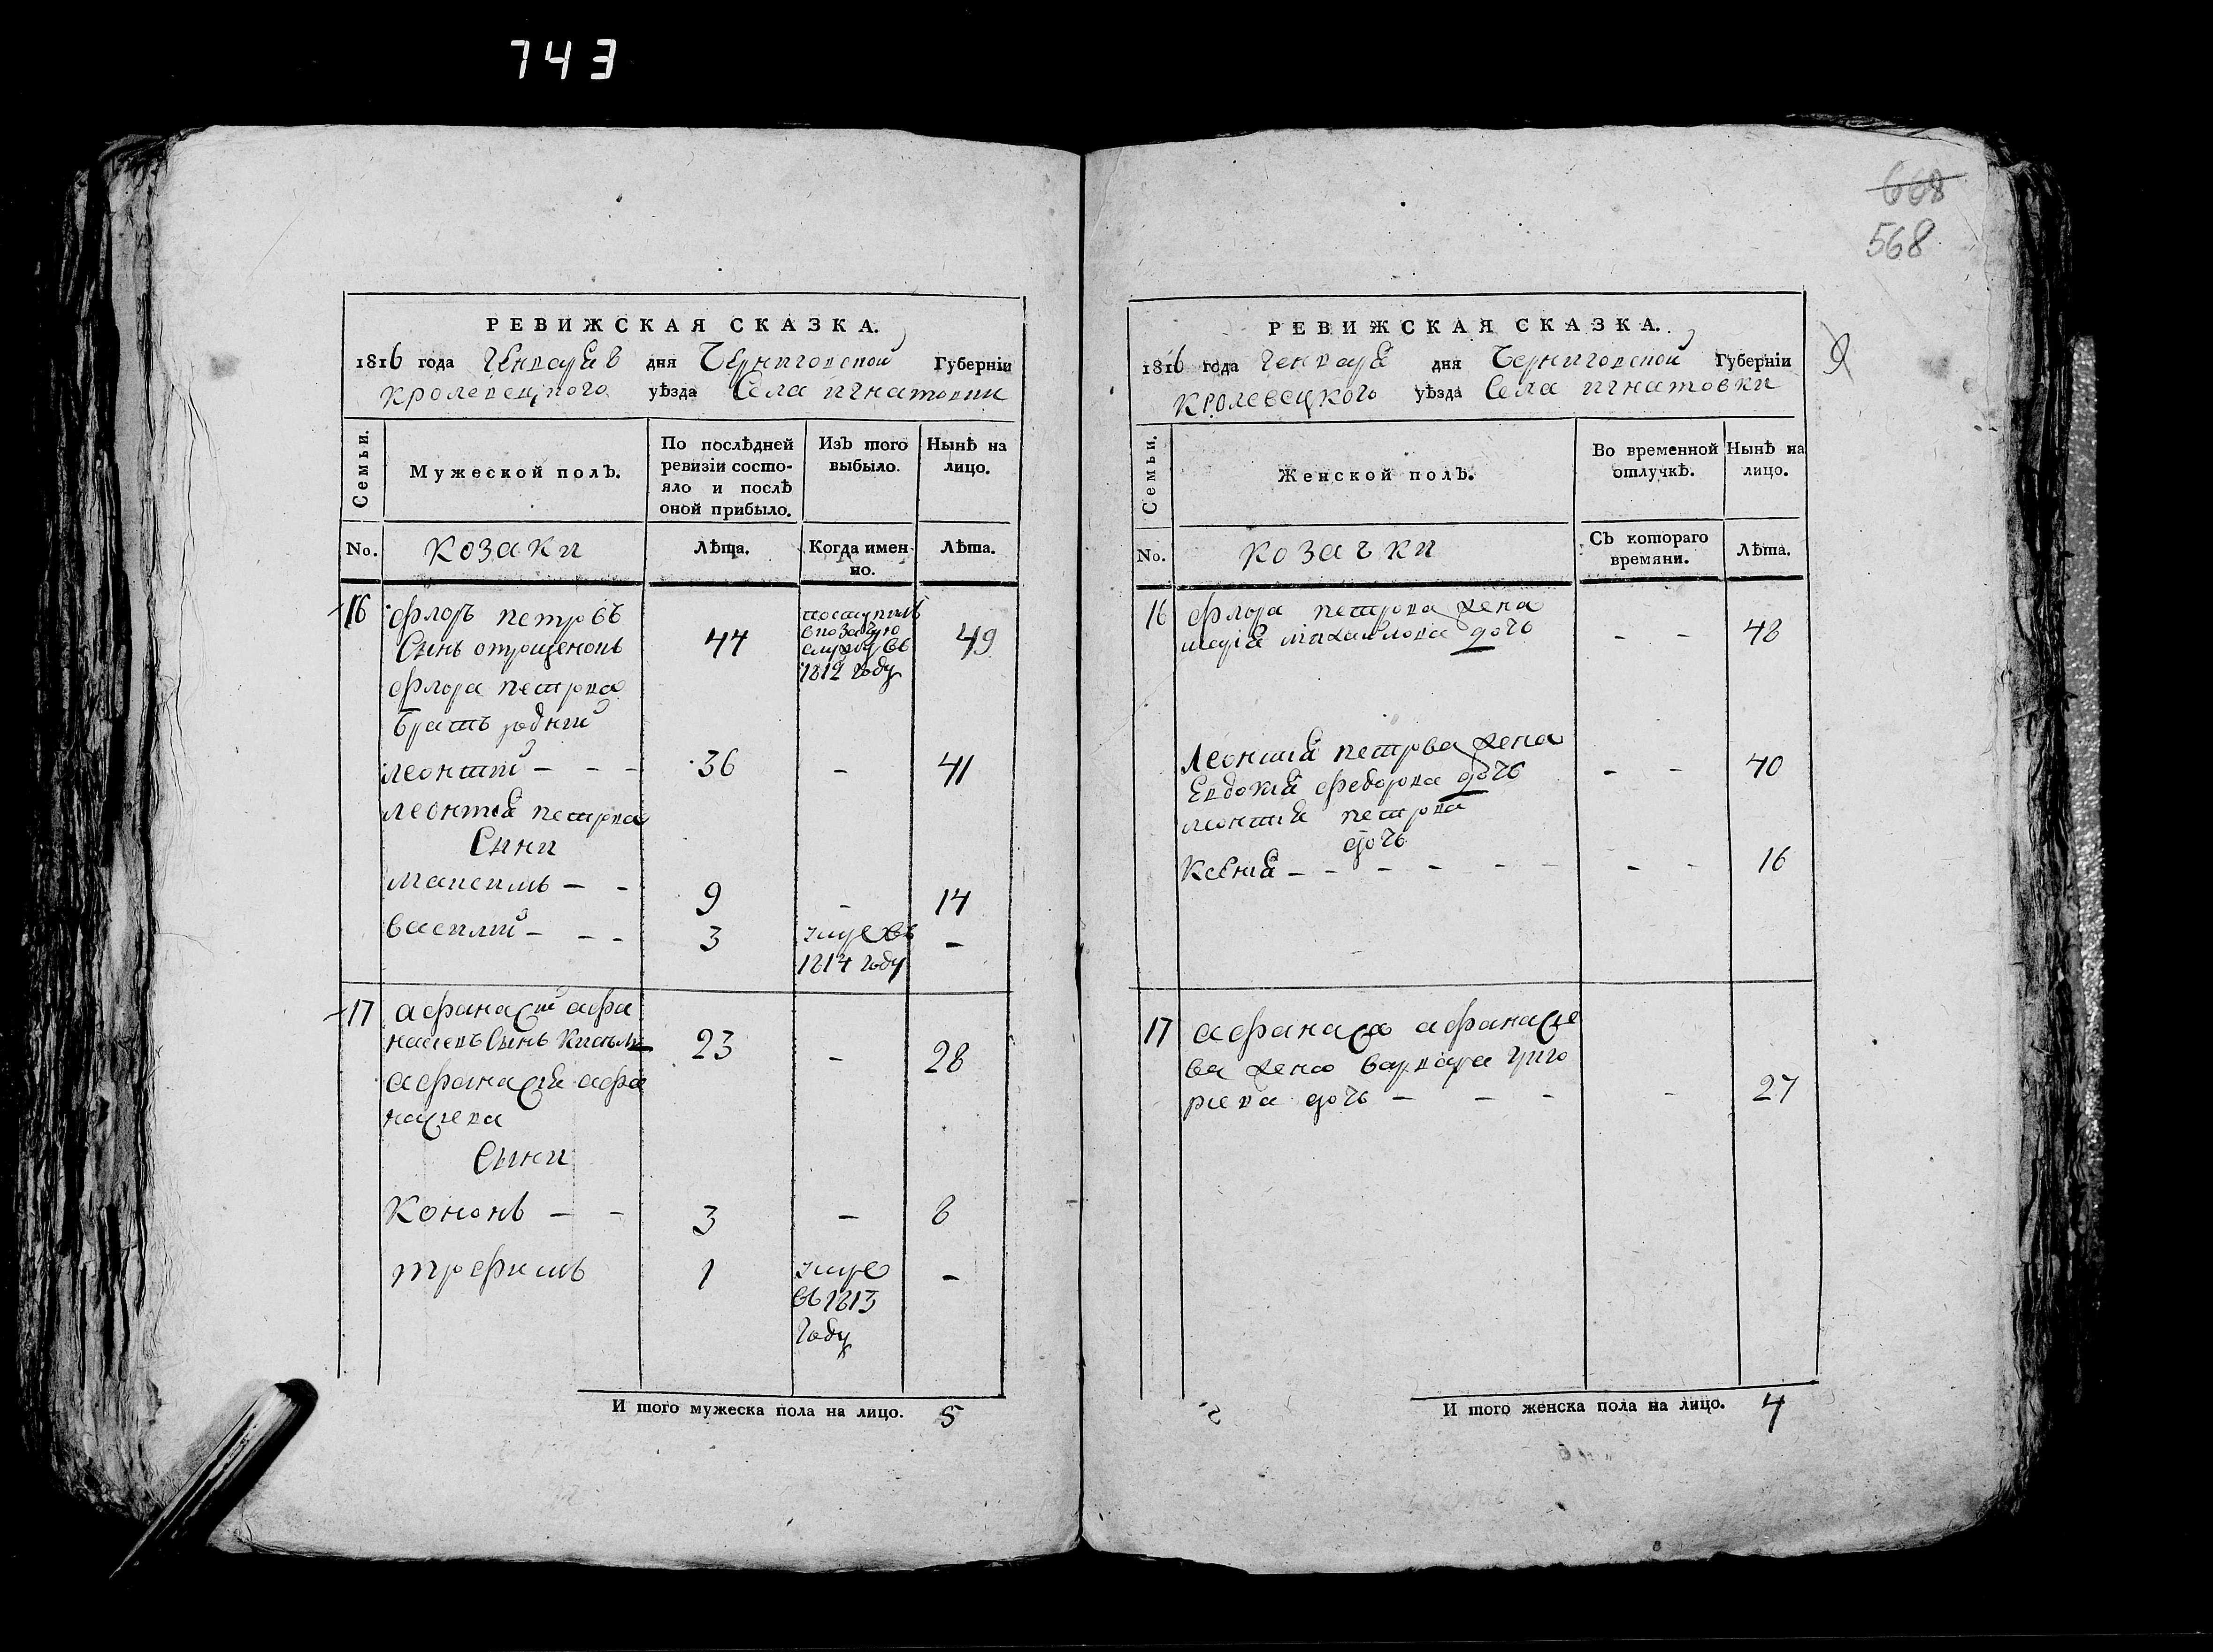 743
668
568
РЕВИЖСКАЯ СКАЗКА.
1816 года Генваря в дня Черниговской Губерніи
кролевецкого уѣзда Села игнатовки
Семьи.
Мужеской полъ.
По послѣдней ревизіи состояло и послѣ оной прибыло.
Изъ того выбыло.
Нынѣ на лицо.
No.
козаки
Лѣта.
Когда именно.
Лѣта.
16 флоръ петровъ
Сынъ 44 49
поступилъ
в козачую
службу въ
1812 году
флора петрова
братъ родний
леонтий - - - 36 - 41
леонтия петрова
Сыни
максимъ - - 9 - 14
василий - - - 3 умре въ -
1814 году
17 афанасий афа
насиевъ Сынъ 23 - 28
афанасия афа
насиева
Сыни
Кононъ - - 3 - 8
трофимъ 1 умре -
въ 1813
году
И того мужеска пола на лицо. 5
РЕВИЖСКАЯ СКАЗКА.
1816 года Генваря дня Черниговской Губерніи
кролевецкого уѣзда Села игнатовки
9
Семьи.
Женской полъ.
Во временной отлучкѣ.
Нынѣ на лицо.
No.
козачки
Съ котораго времяни.
Лѣта.
16 флора петрова жена
марія михайлова дочь - - 48
Леонтия петрова жена
Евдокия федорова дочь - - 40
леонтия петрова
дочь
Ксения - - - - - - - - 16
17 афанасия афанасие
ва жена варвара григо
риева дочь - - - - 27
И того женска пола на лицо. 4